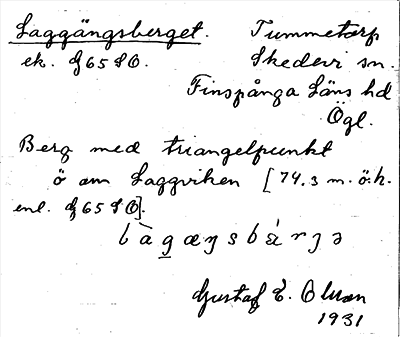 Laggängsberget. Tummetorp
ek. G 65 SO. Skedevi sn.
Finspånga Läns hd
Ögl.
Berg med triangelpunkt
ö om Laggviken [74.3 m. ö.h.
enl. G 65 SO].
Gustaf E. Olson
1931